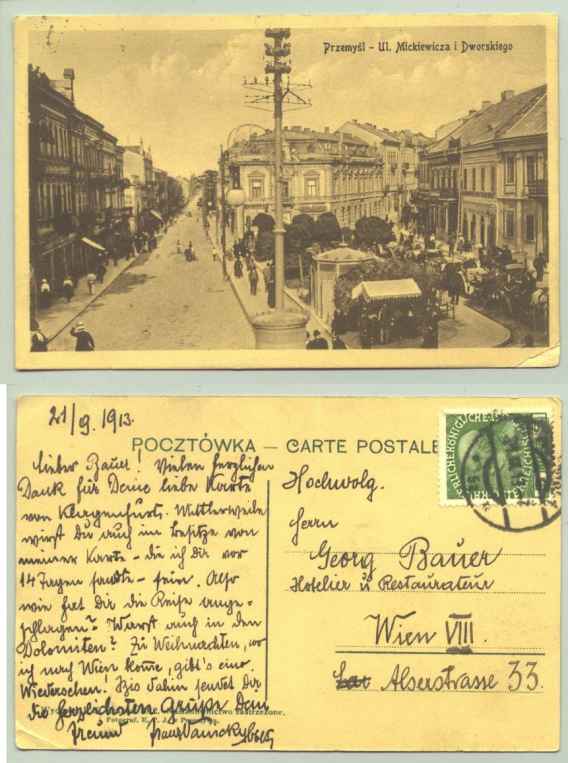 Przemyśl - Ul. Mickiewicza i Dworskiego
21/9. 1913.
POCZTÓWKA — CARTE POSTALE
Lieber Bauer! Vielen herzlichen
Dank für Deine liebe Karte
von Klagenfurt. Mittlerweile
wirst Du auch im Besitze von
meiner Karte - die ich Dir vor
14 Tagen sandte - sein. Also
wie hat Dir die Reise ange-
schlagen? Warst auch in den
Dolomiten? Zu Weihnachten, wo
ich nach Wien kome, gibt's ein
Wiedersehen! Bis dahin sendet Dir
die herzlichsten Grüße Dein
Freund Franz
Hochwolg.
Herrn
Georg Bauer
Hotelier u Restaurateur
Wien VIII.
Alserstrasse 33.